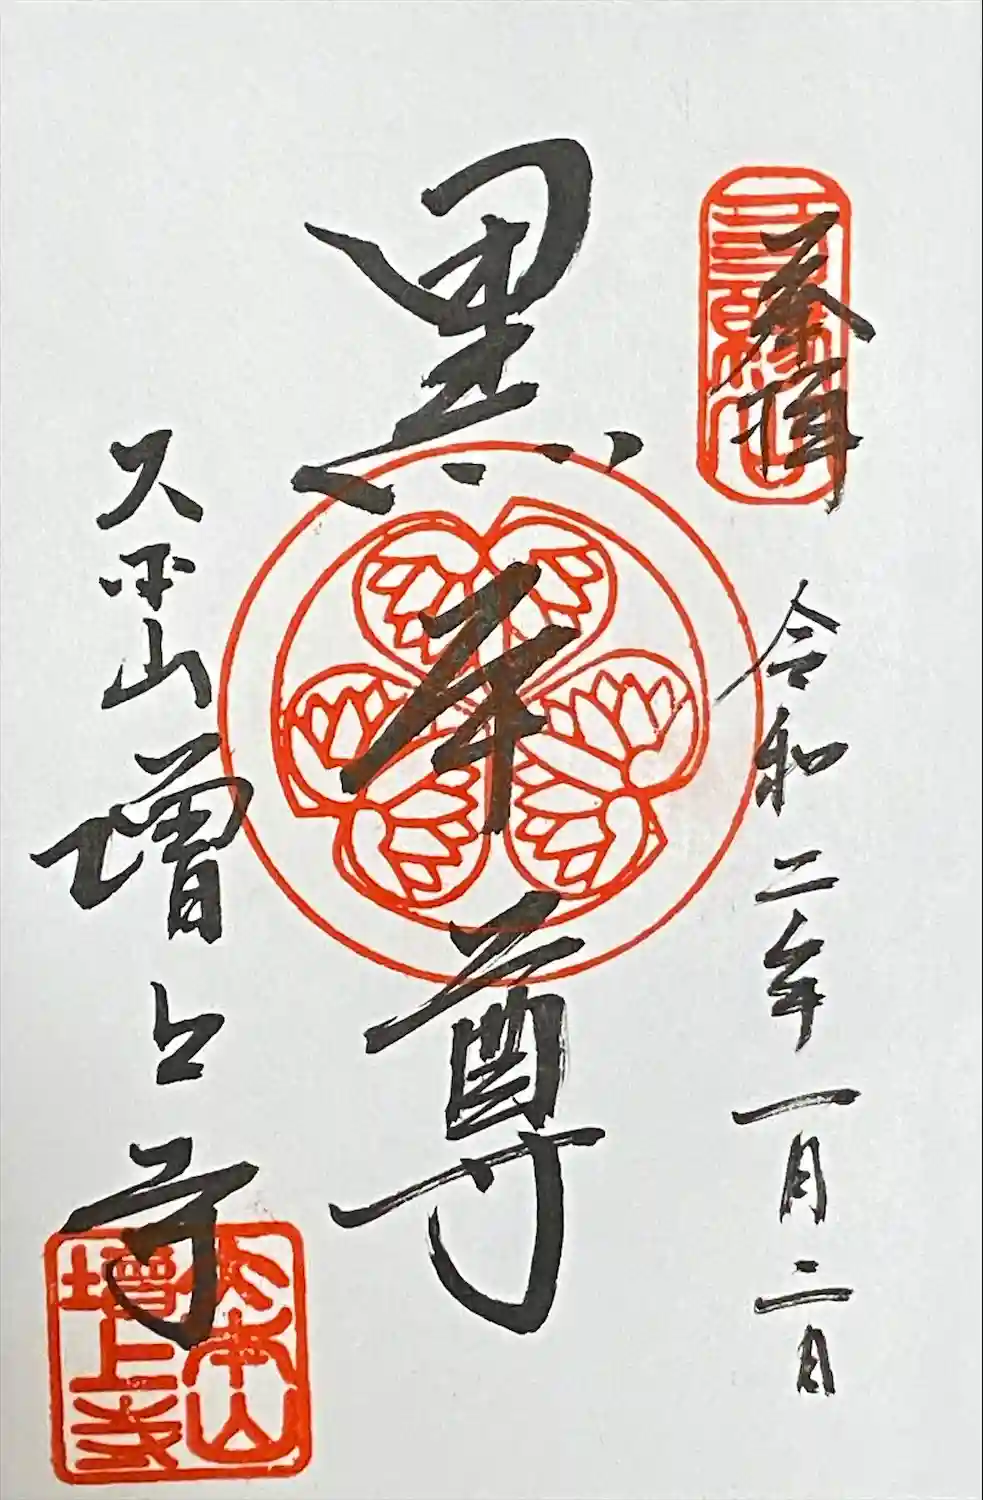 奉拝
三縁山
令和二年一月二日
黒本尊
大本山増上寺
大本山
増上寺